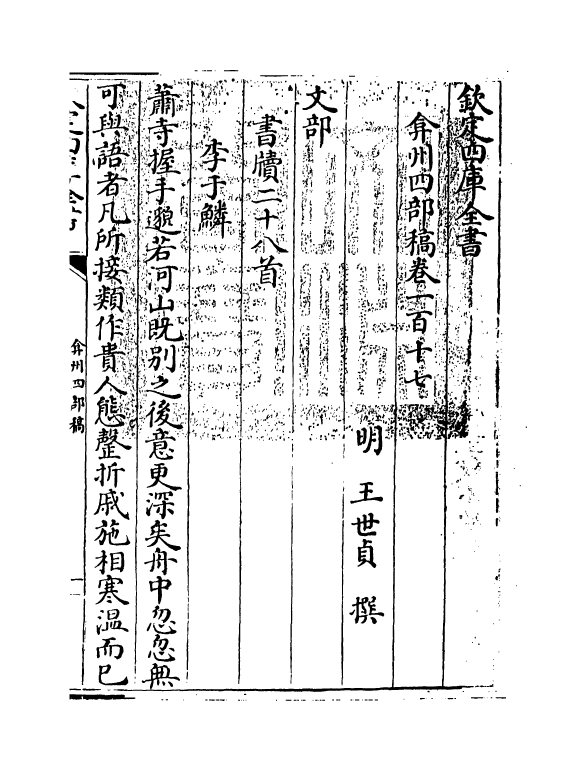 欽定四庫全書
弇州四部稿卷一百十七
明 王世貞 撰
文部
書牘二十八首
李于鱗
蕭寺握手邈若河山既别之後意更深矣舟中忽忽無
可與語者凡所接類作貴人態罄折戚施相寒温而已
弇州四部稿
一